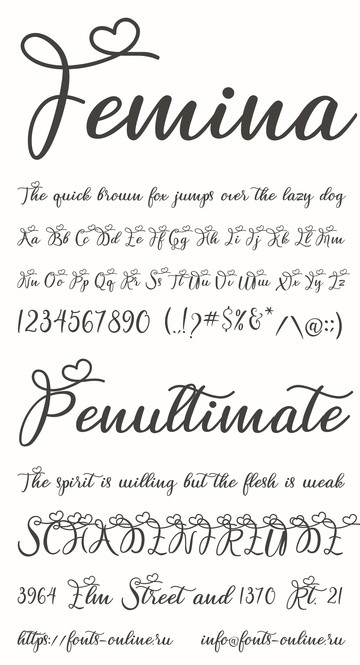 Femina
The quick brown fox jumps over the lazy dog
Aa Bb Cc Dd Ee Ff Gg Hh Ii Jj Kk Ll Mm
Nn Oo Pp Qq Rr Ss Tt Uu Vv Ww Xx Yy Zz
1234567890 (.,!?#$%&*/\@:;)
Penultimate
The spirit is willing but the flesh is weak
SCHADENFREUDE
3964 Elm Street and 1370 Rt. 21
https://fonts-online.ru info@fonts-online.ru